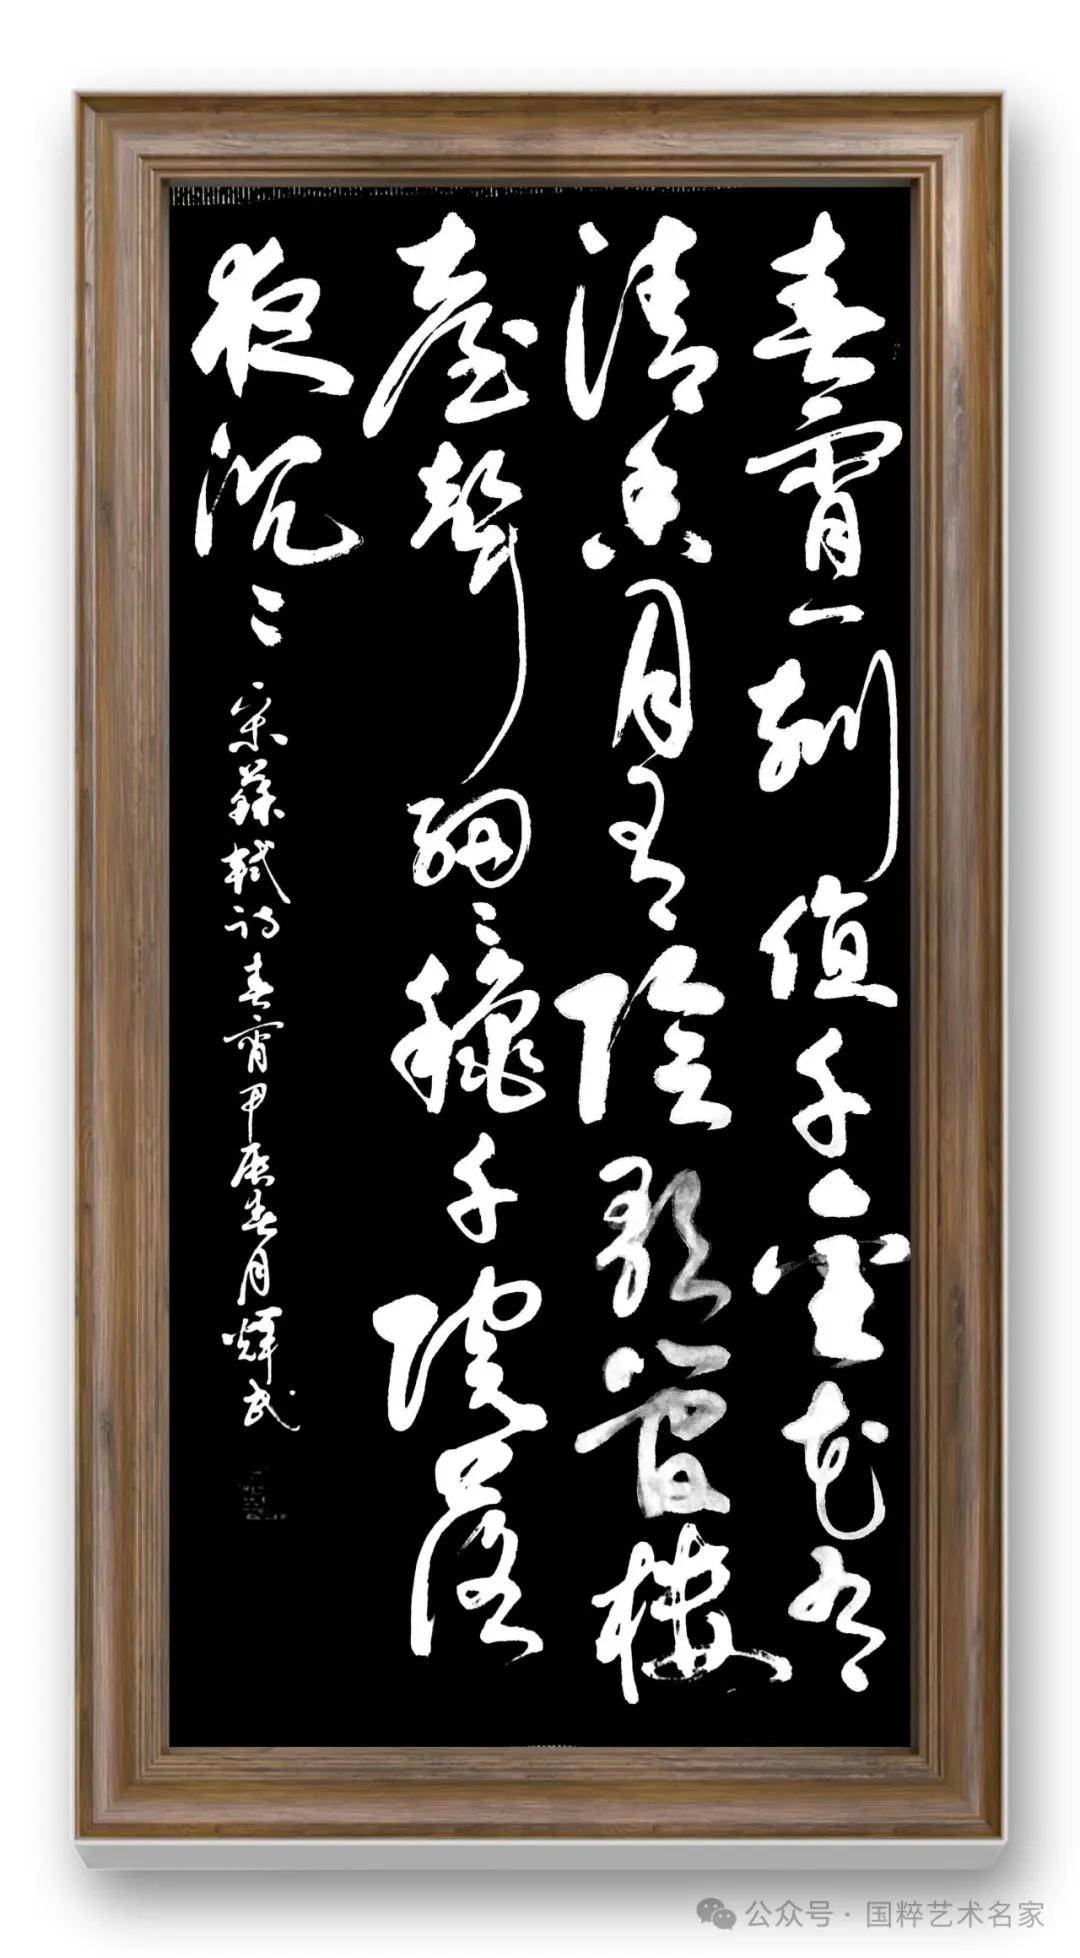 春宵一刻值千金花有
清香月有陰歌管樓
臺聲細〻龝千院落
夜沉〻
宋蘇軾詩春宵甲辰春月輝武
公众号·国粹艺术名家